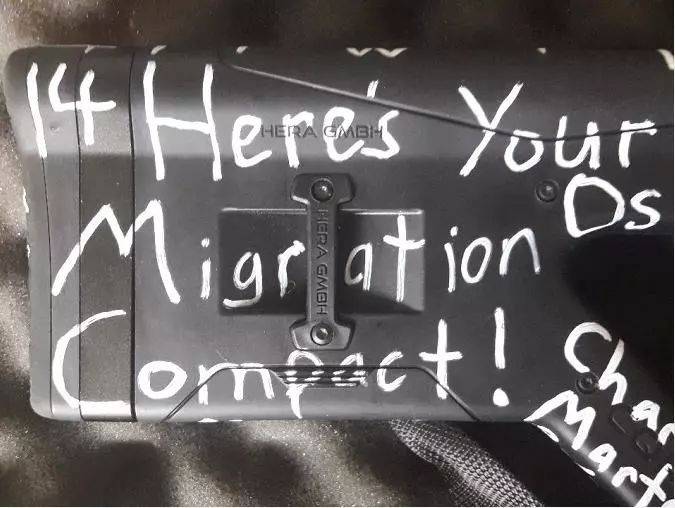 14 Here's Your
HERA GMBH
Ds
Migration
HERA GMBH
Compact!
Char
Mart